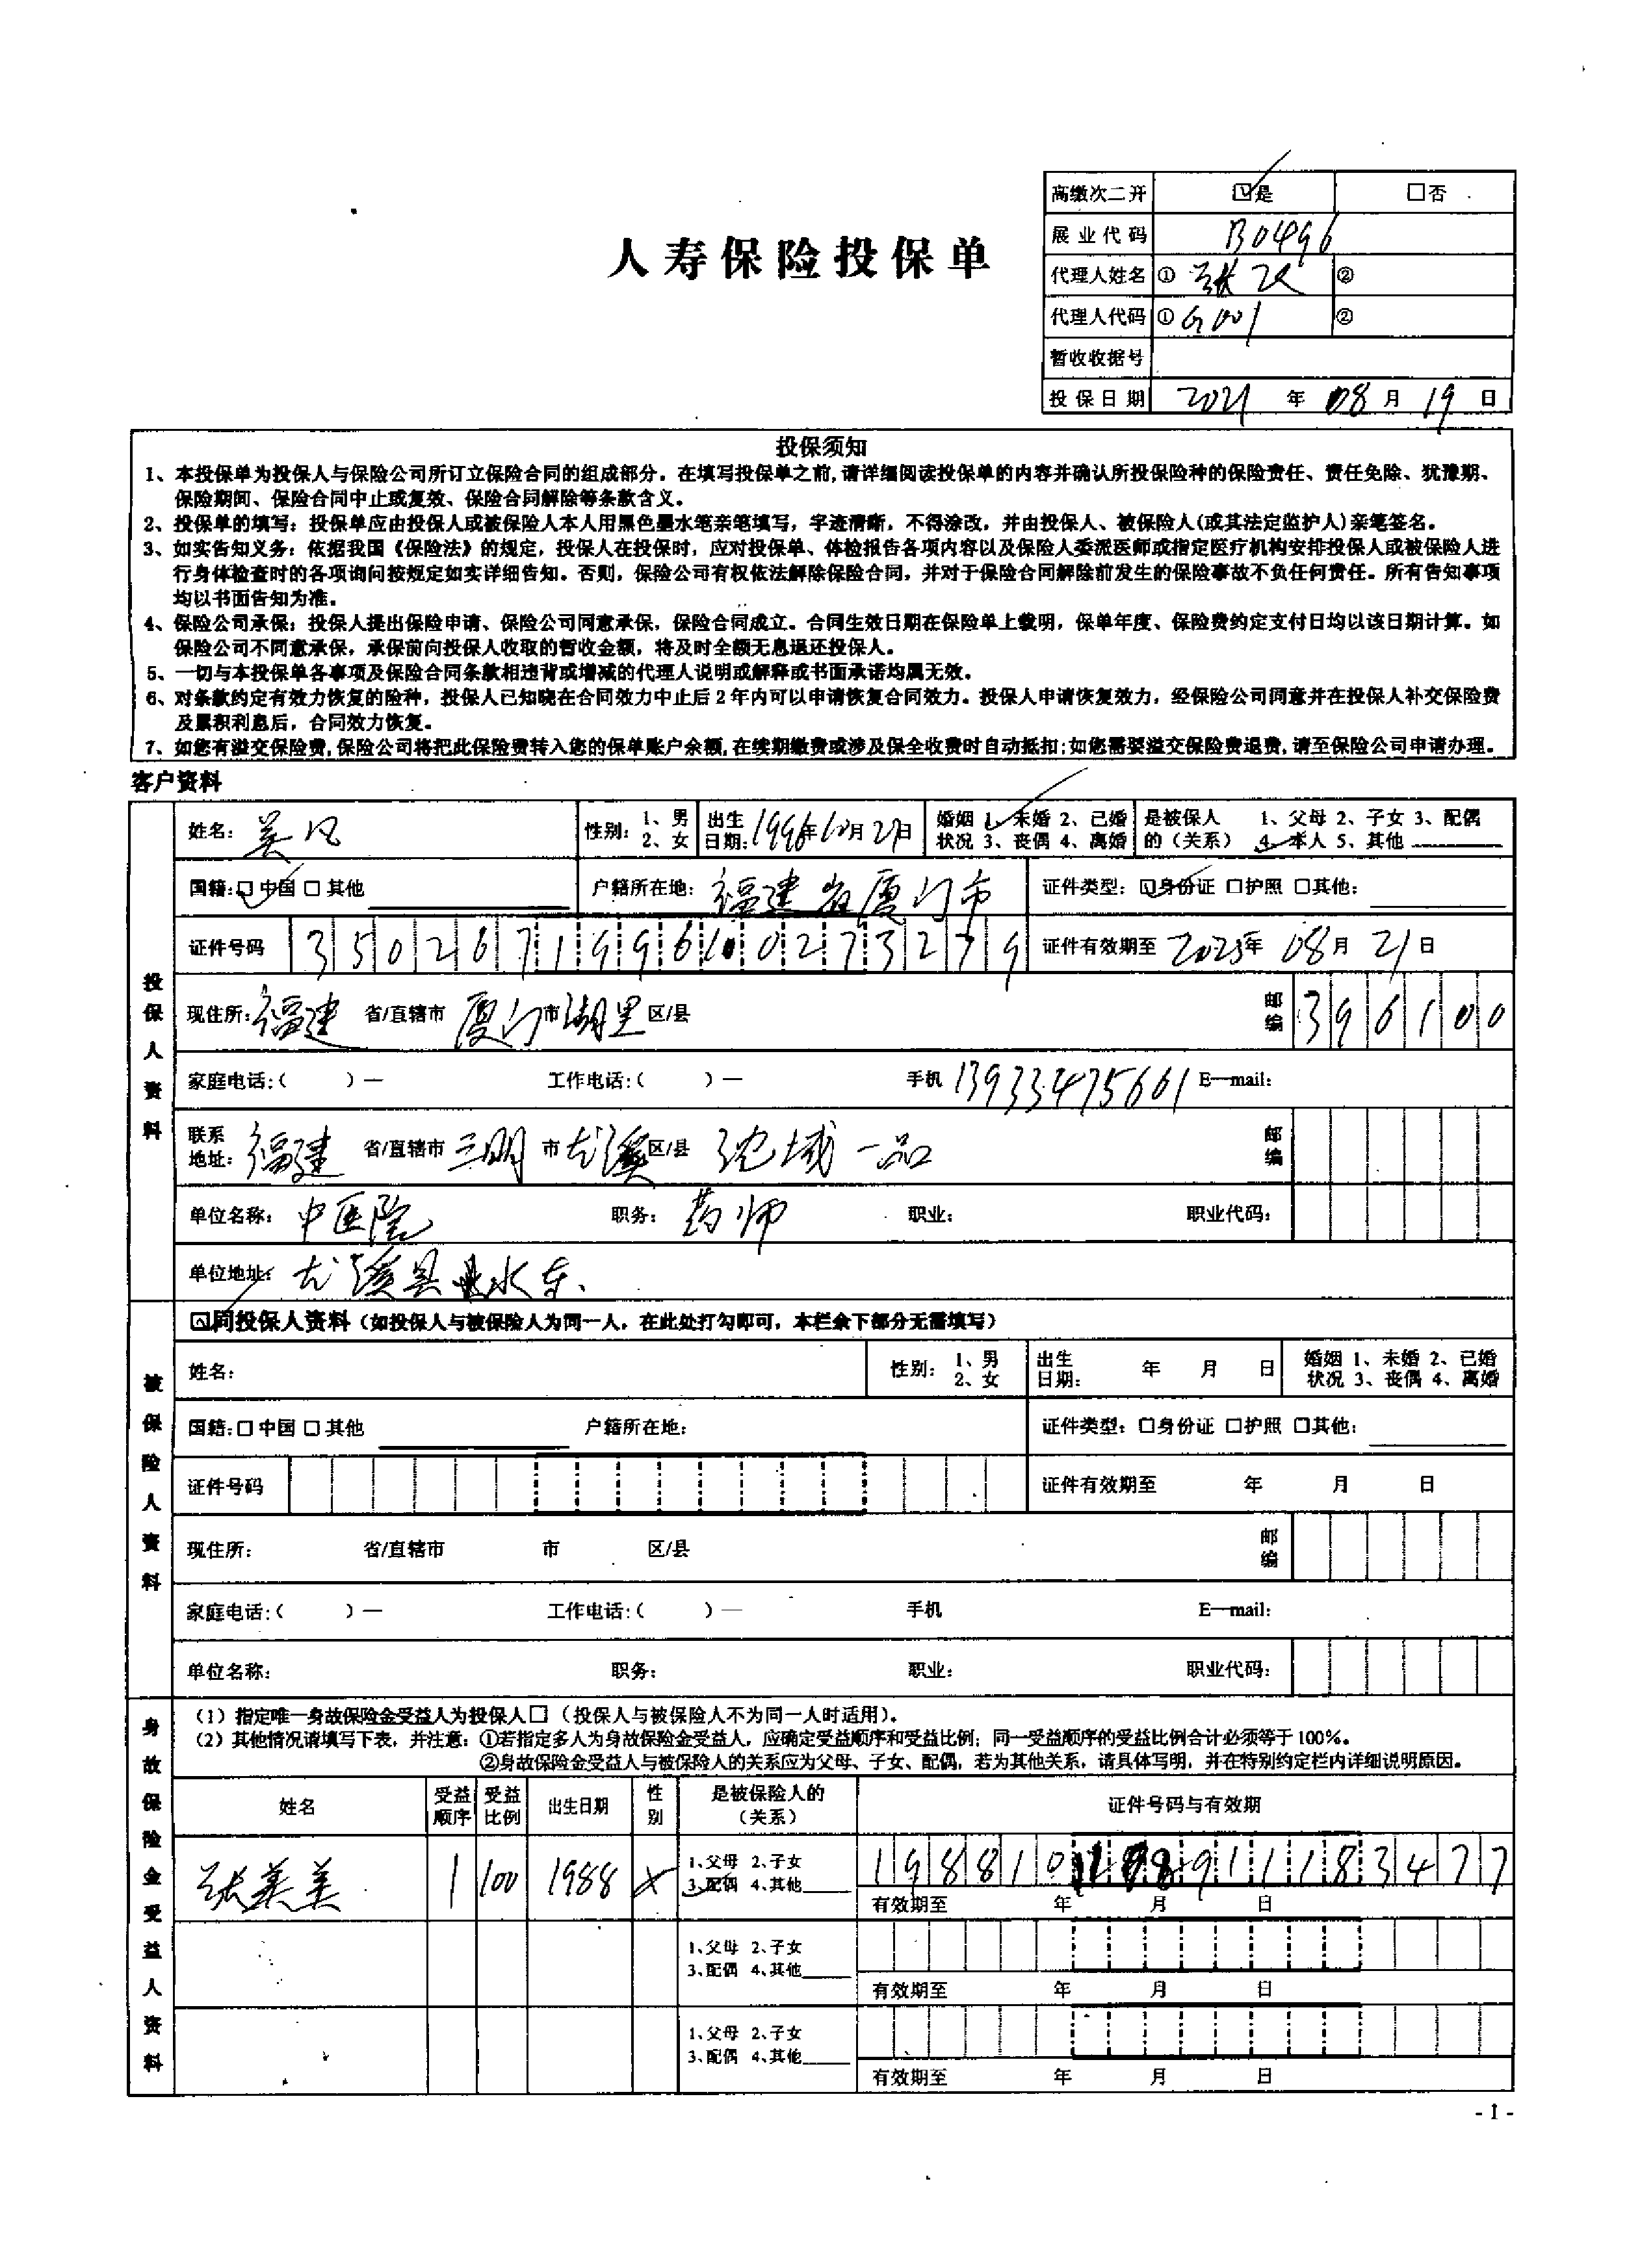 高缴次二开 ☑是 □否
人寿保险投保单
展业代码 B0496
代理人姓名 ① 张 ②
代理人代码 ① G001 ②
暂收收据号
投保日期 2021 年 08 月 19 日
投保须知
1、本投保单为投保人与保险公司所订立保险合同的组成部分。在填写投保单之前,请详细阅读投保单的内容并确认所投保险种的保险责任、责任免除、犹豫期、
保险期间、保险合同中止或复效、保险合同解除等条款含义。
2、投保单的填写：投保单应由投保人或被保险人本人用黑色墨水笔亲笔填写，字迹清晰，不得涂改，并由投保人、被保险人(或其法定监护人)亲笔签名。
3、如实告知义务：依据我国《保险法》的规定，投保人在投保时，应对投保单、体检报告各项内容以及保险人委派医师或指定医疗机构安排投保人或被保险人进
行身体检查时的各项询问按规定如实详细告知。否则，保险公司有权依法解除保险合同，并对于保险合同解除前发生的保险事故不负任何责任。所有告知事项
均以书面告知为准。
4、保险公司承保：投保人提出保险申请、保险公司同意承保，保险合同成立。合同生效日期在保险单上载明，保单年度、保险费约定支付日均以该日期计算。如
保险公司不同意承保，承保前向投保人收取的暂收金额，将及时全额无息退还投保人。
5、一切与本投保单各事项及保险合同条款相违背或增减的代理人说明或解释或书面承诺均属无效。
6、对条款约定有效力恢复的险种，投保人已知晓在合同效力中止后 2 年内可以申请恢复合同效力。投保人申请恢复效力，经保险公司同意并在投保人补交保险费
及累积利息后，合同效力恢复。
7、如您有溢交保险费,保险公司将把此保险费转入您的保单账户余额,在续期缴费或涉及保全收费时自动抵扣;如您需要溢交保险费退费,请至保险公司申请办理。
客户资料
投保人资料
姓名： 性别：1、男 2、女 出生日期：1996年10月27日 婚姻状况 1、未婚 2、已婚 3、丧偶 4、离婚 是被保人的（关系） 1、父母 2、子女 3、配偶 4、本人 5、其他
国籍：☑中国 □其他 户籍所在地：福建省厦门市 证件类型：☑身份证 □护照 □其他：
证件号码 350267199610273279 证件有效期至 2025年 08月 21日
现住所：福建 省/直辖市 厦门 市 湖里 区/县 邮编 396100
家庭电话:( )— 工作电话:( )— 手机 13933475661 E—mail：
联系地址：福建 省/直辖市 三明 市 尤溪 区/县 沈城一品 邮编
单位名称：中医院 职务：药师 职业： 职业代码：
单位地址：尤溪县水东
被保险人资料
☑同投保人资料（如投保人与被保险人为同一人，在此处打勾即可，本栏余下部分无需填写）
姓名： 性别：1、男 2、女 出生日期： 年 月 日 婚姻状况 1、未婚 2、已婚 3、丧偶 4、离婚
国籍：□中国 □其他 户籍所在地： 证件类型：□身份证 □护照 □其他：
证件号码 证件有效期至 年 月 日
现住所： 省/直辖市 市 区/县 邮编
家庭电话:( )— 工作电话:( )— 手机 E—mail：
单位名称： 职务： 职业： 职业代码：
身故保险金受益人资料
（1）指定唯一身故保险金受益人为投保人□（投保人与被保险人不为同一人时适用）。
（2）其他情况请填写下表，并注意：①若指定多人为身故保险金受益人，应确定受益顺序和受益比例；同一受益顺序的受益比例合计必须等于 100%。
②身故保险金受益人与被保险人的关系应为父母、子女、配偶，若为其他关系，请具体写明，并在特别约定栏内详细说明原因。
姓名 受益顺序 受益比例 出生日期 性别 是被保险人的（关系） 证件号码与有效期
张美美 1 100 1988 1、父母 2、子女 3、配偶 4、其他
有效期至 年 月 日
1、父母 2、子女 3、配偶 4、其他
有效期至 年 月 日
1、父母 2、子女 3、配偶 4、其他
有效期至 年 月 日
- 1 -